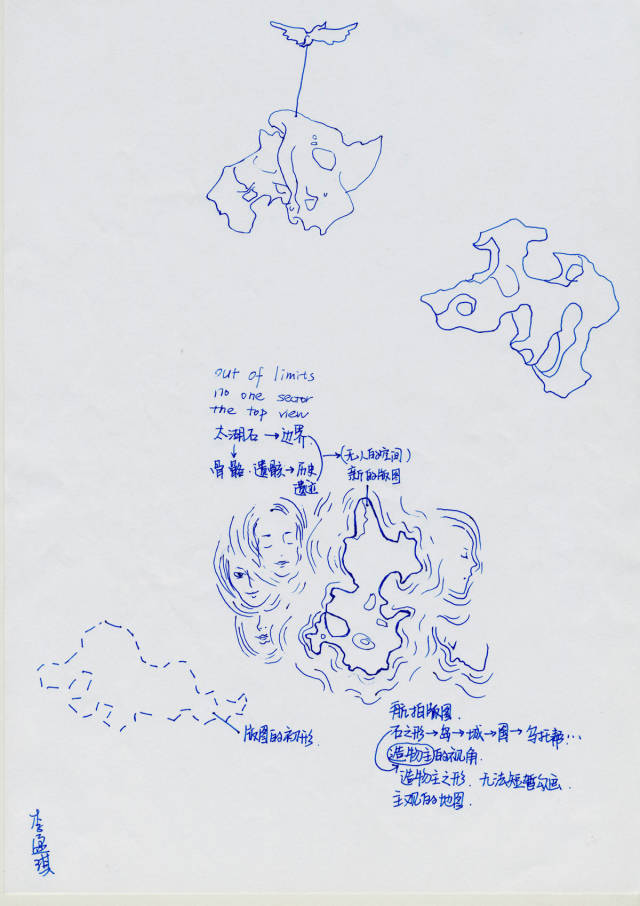 out of limits
no one sector
the top view
太湖石→边界.
(无人的空间)
骨骼.遗骸→历史
遗迹
新的版图
版图的初形.
航拍版图.
石之形→岛→城→国→乌托帮…
造物主的视角.
造物主之形.无法短暂勾画
主观的地图.
李盈琪